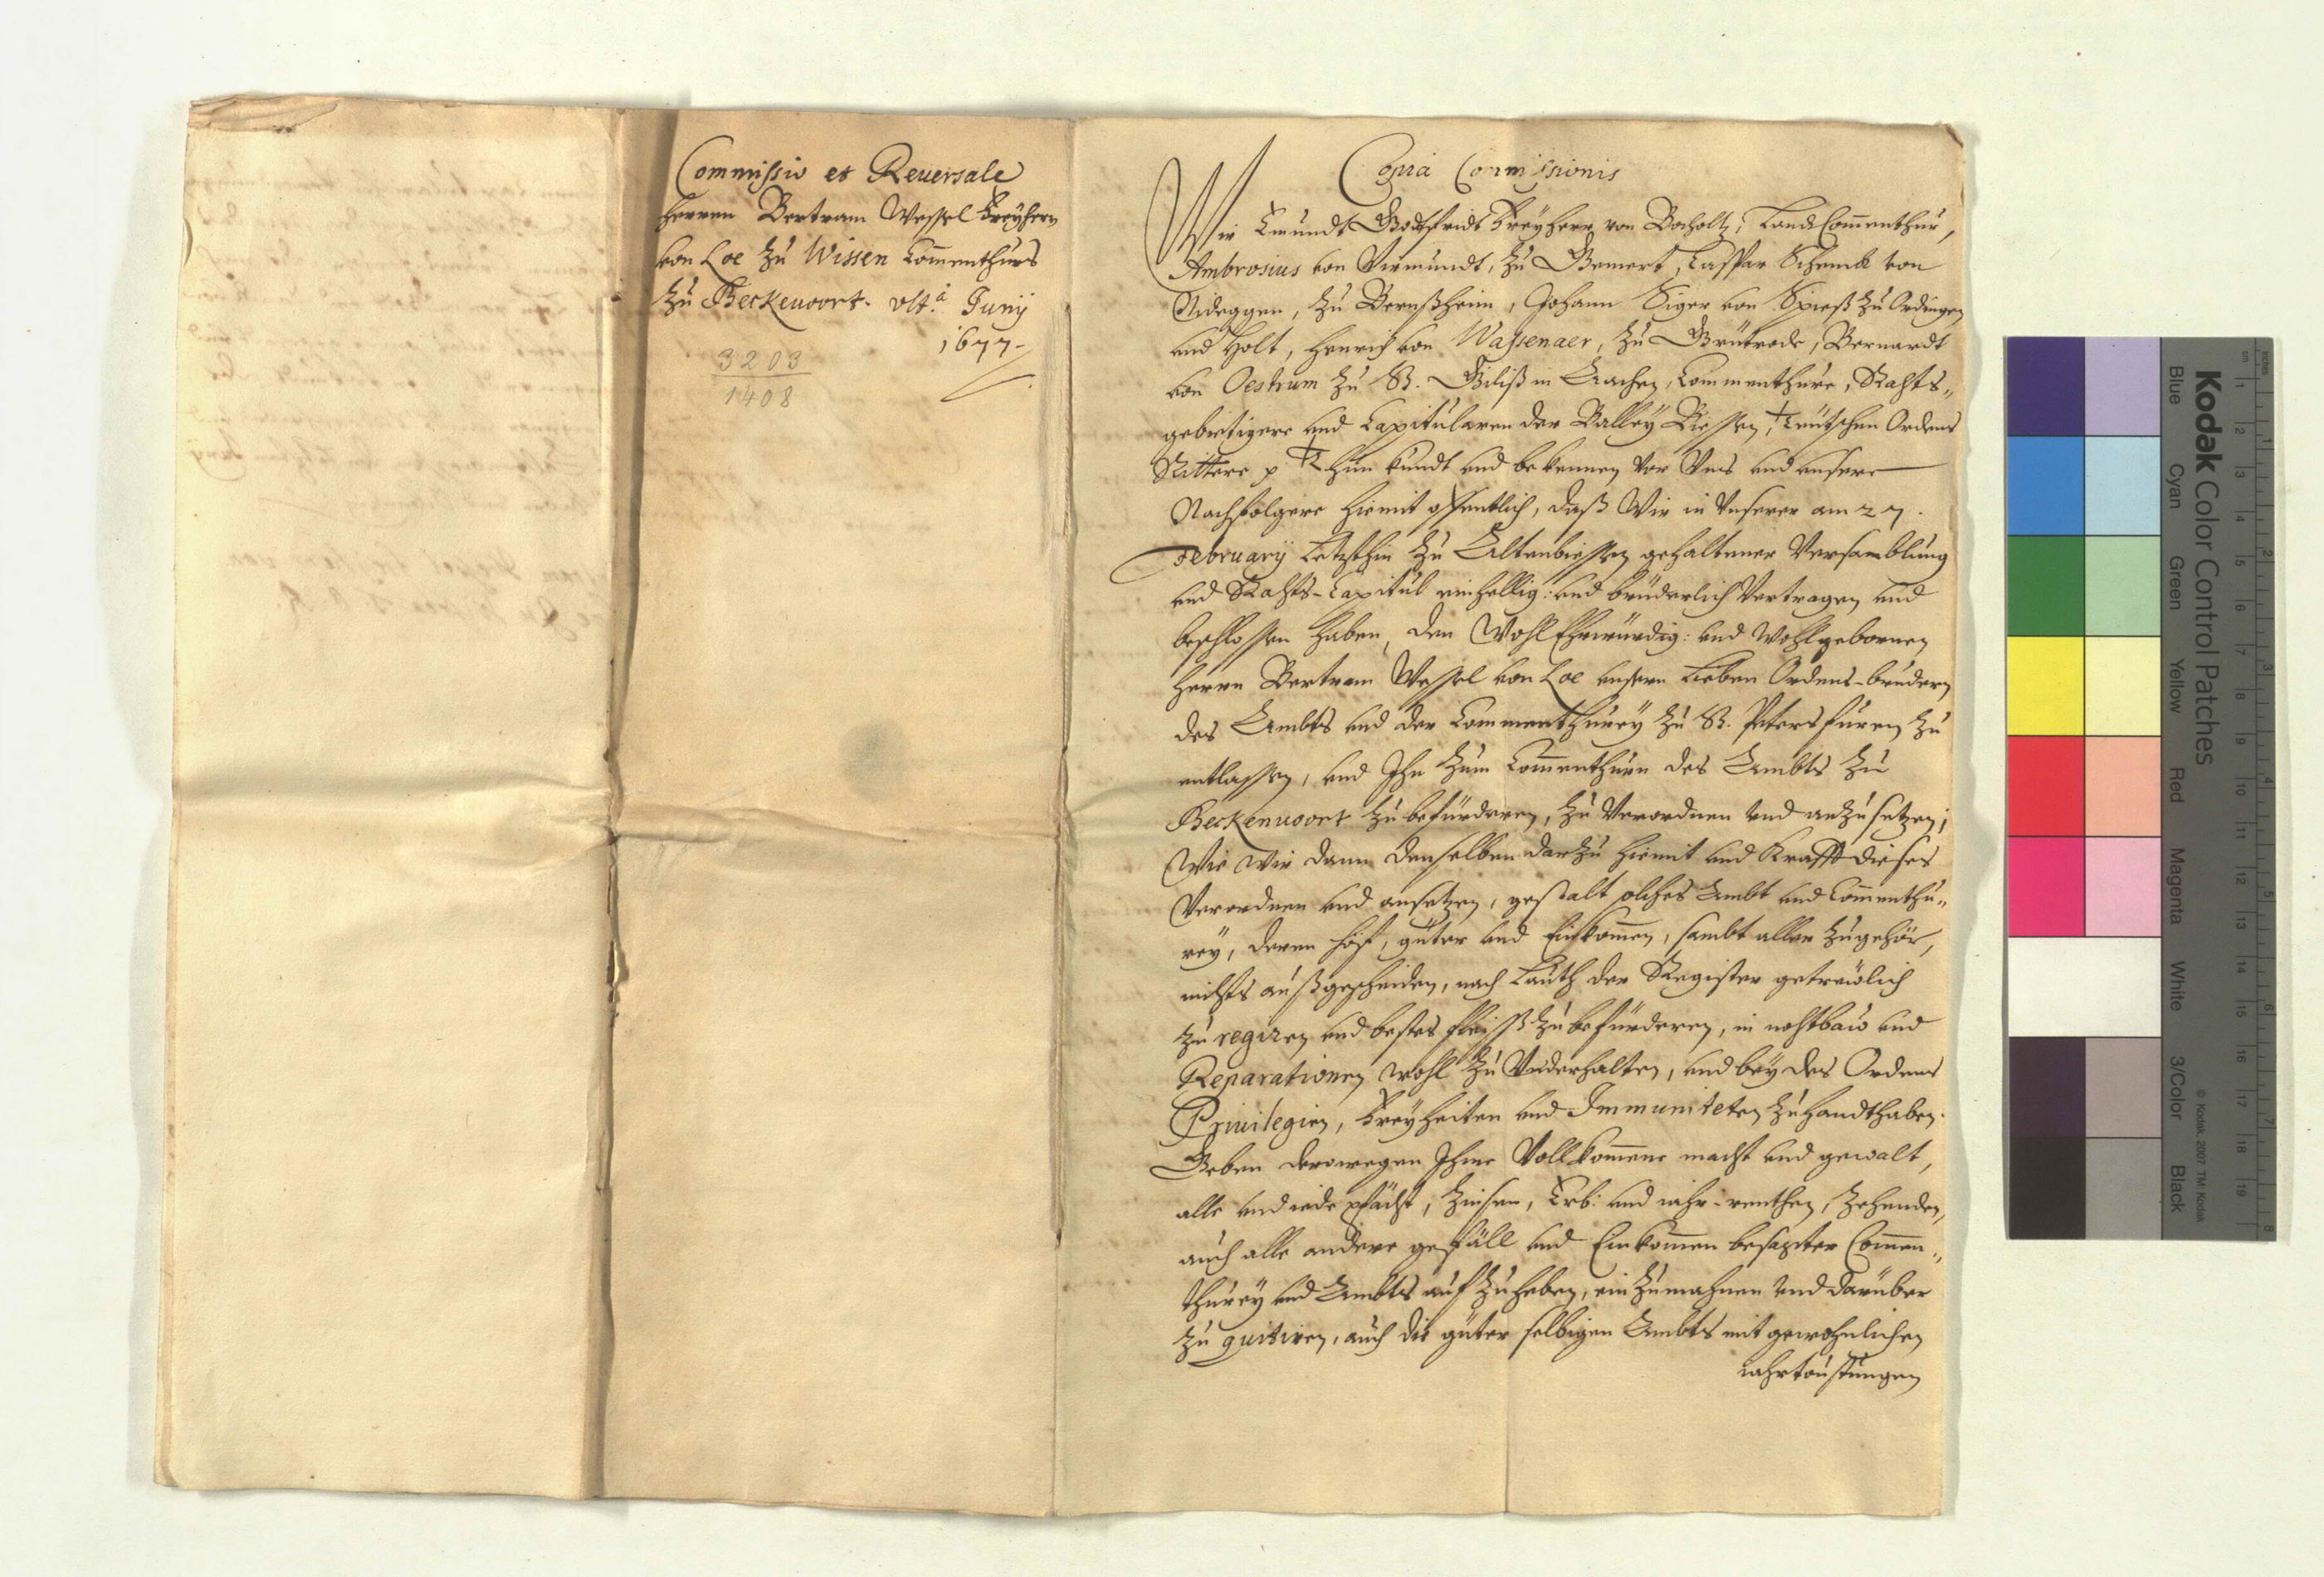 Commissio et Reuersale
Herren Bertram Wessel Freyhern
von Loe zu Wissen Commenthurs
zu Beckeuoort. ult.a Junij
1677.
3203
1408
Copia Commissionis
Wir Edmundt Godtfridt Freyherr von Bocholtz, LandCommenthur,
Ambrosius von Virmundt, zu Gemert, Caspar Schenck von
Nideggen, zu Bernßheim, Johann Siger von Spieß zu Ordingen
und Holt, Henrich von Wassenaer, zu Grütrode, Bernardt
von Oestrum zu St. Gilliß in Aachen, Commenthure, Rahts„
gebietigere und Capitularen der Balley Biessen, Teutschen Ordens
Rittere p. Thun kundt und bekennen vor Uns und unsere
Nachfolgere hiemit offentlich, daß Wir in Unserer am 27.
February letzthin zu Altenbiessen gehaltener Versamblung
und Rahts-Capitul einhellig: und brüderlich Vertragen und
beschlossen haben, den WohlEhrwürdig: und Wohlgebornen
Herrn Bertram Wessel von Loe unsern lieben Ordens-brudern
des Ambts und der Commenthurey zu St. Petersfuren zu
entlassen, und Ihn zum Commenthurn des Ambts zu
Beckenuoort zu befürderen, zu Verordnen und anzusetzen;
Wie Wir dann denselben darzu hiemit und Krafft dieses
Verordnen und ansetzen, gestalt solches Ambt und Commenthu„
rey, deren höff, güter und Einkommen, sambt allem zugehör,
nichts außgescheiden, nach Lauth der Register getrewlich
zu regiren und bestes fleisß zu befürderen, in nohtbaw und
Reparationen wohl zu Underhalten, und bey des Ordens
Priuilegien, Freyheiten und Immuniteten zu handthaben.
Geben derowegen Ihme Vollkommene macht und gewalt,
alle und iede pfächt, Zinsen, Erb: und iahr-renthen, Zehenden,
auch alle andere gefäll und Einkommen besagter Commen„
thurey und Ambts auf zu heben, ein zumahnen und darüber
zu quitiren, auch die güter selbigen Ambts mit gewohnlichen